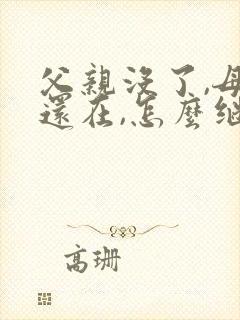 父親沒了,母
還在,怎麼繼
高珊